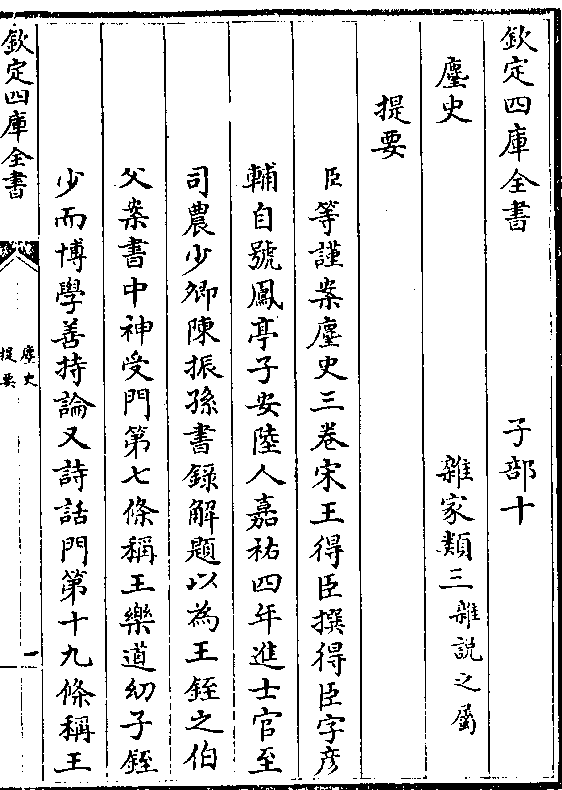 欽定四庫全書　子部十
麈史　雜家類三雜說之屬
提要
臣等謹案麈史三卷宋王得臣撰得臣字彥
輔自號鳳亭子安陸人嘉祐四年進士官至
司農少卿陳振孫書錄解題以為王銍之伯
父案書中神受門第七條稱王樂道幼子銍
少而博學善持論又詩話門第十九條稱王
欽定四庫全書
麈史
提要
一